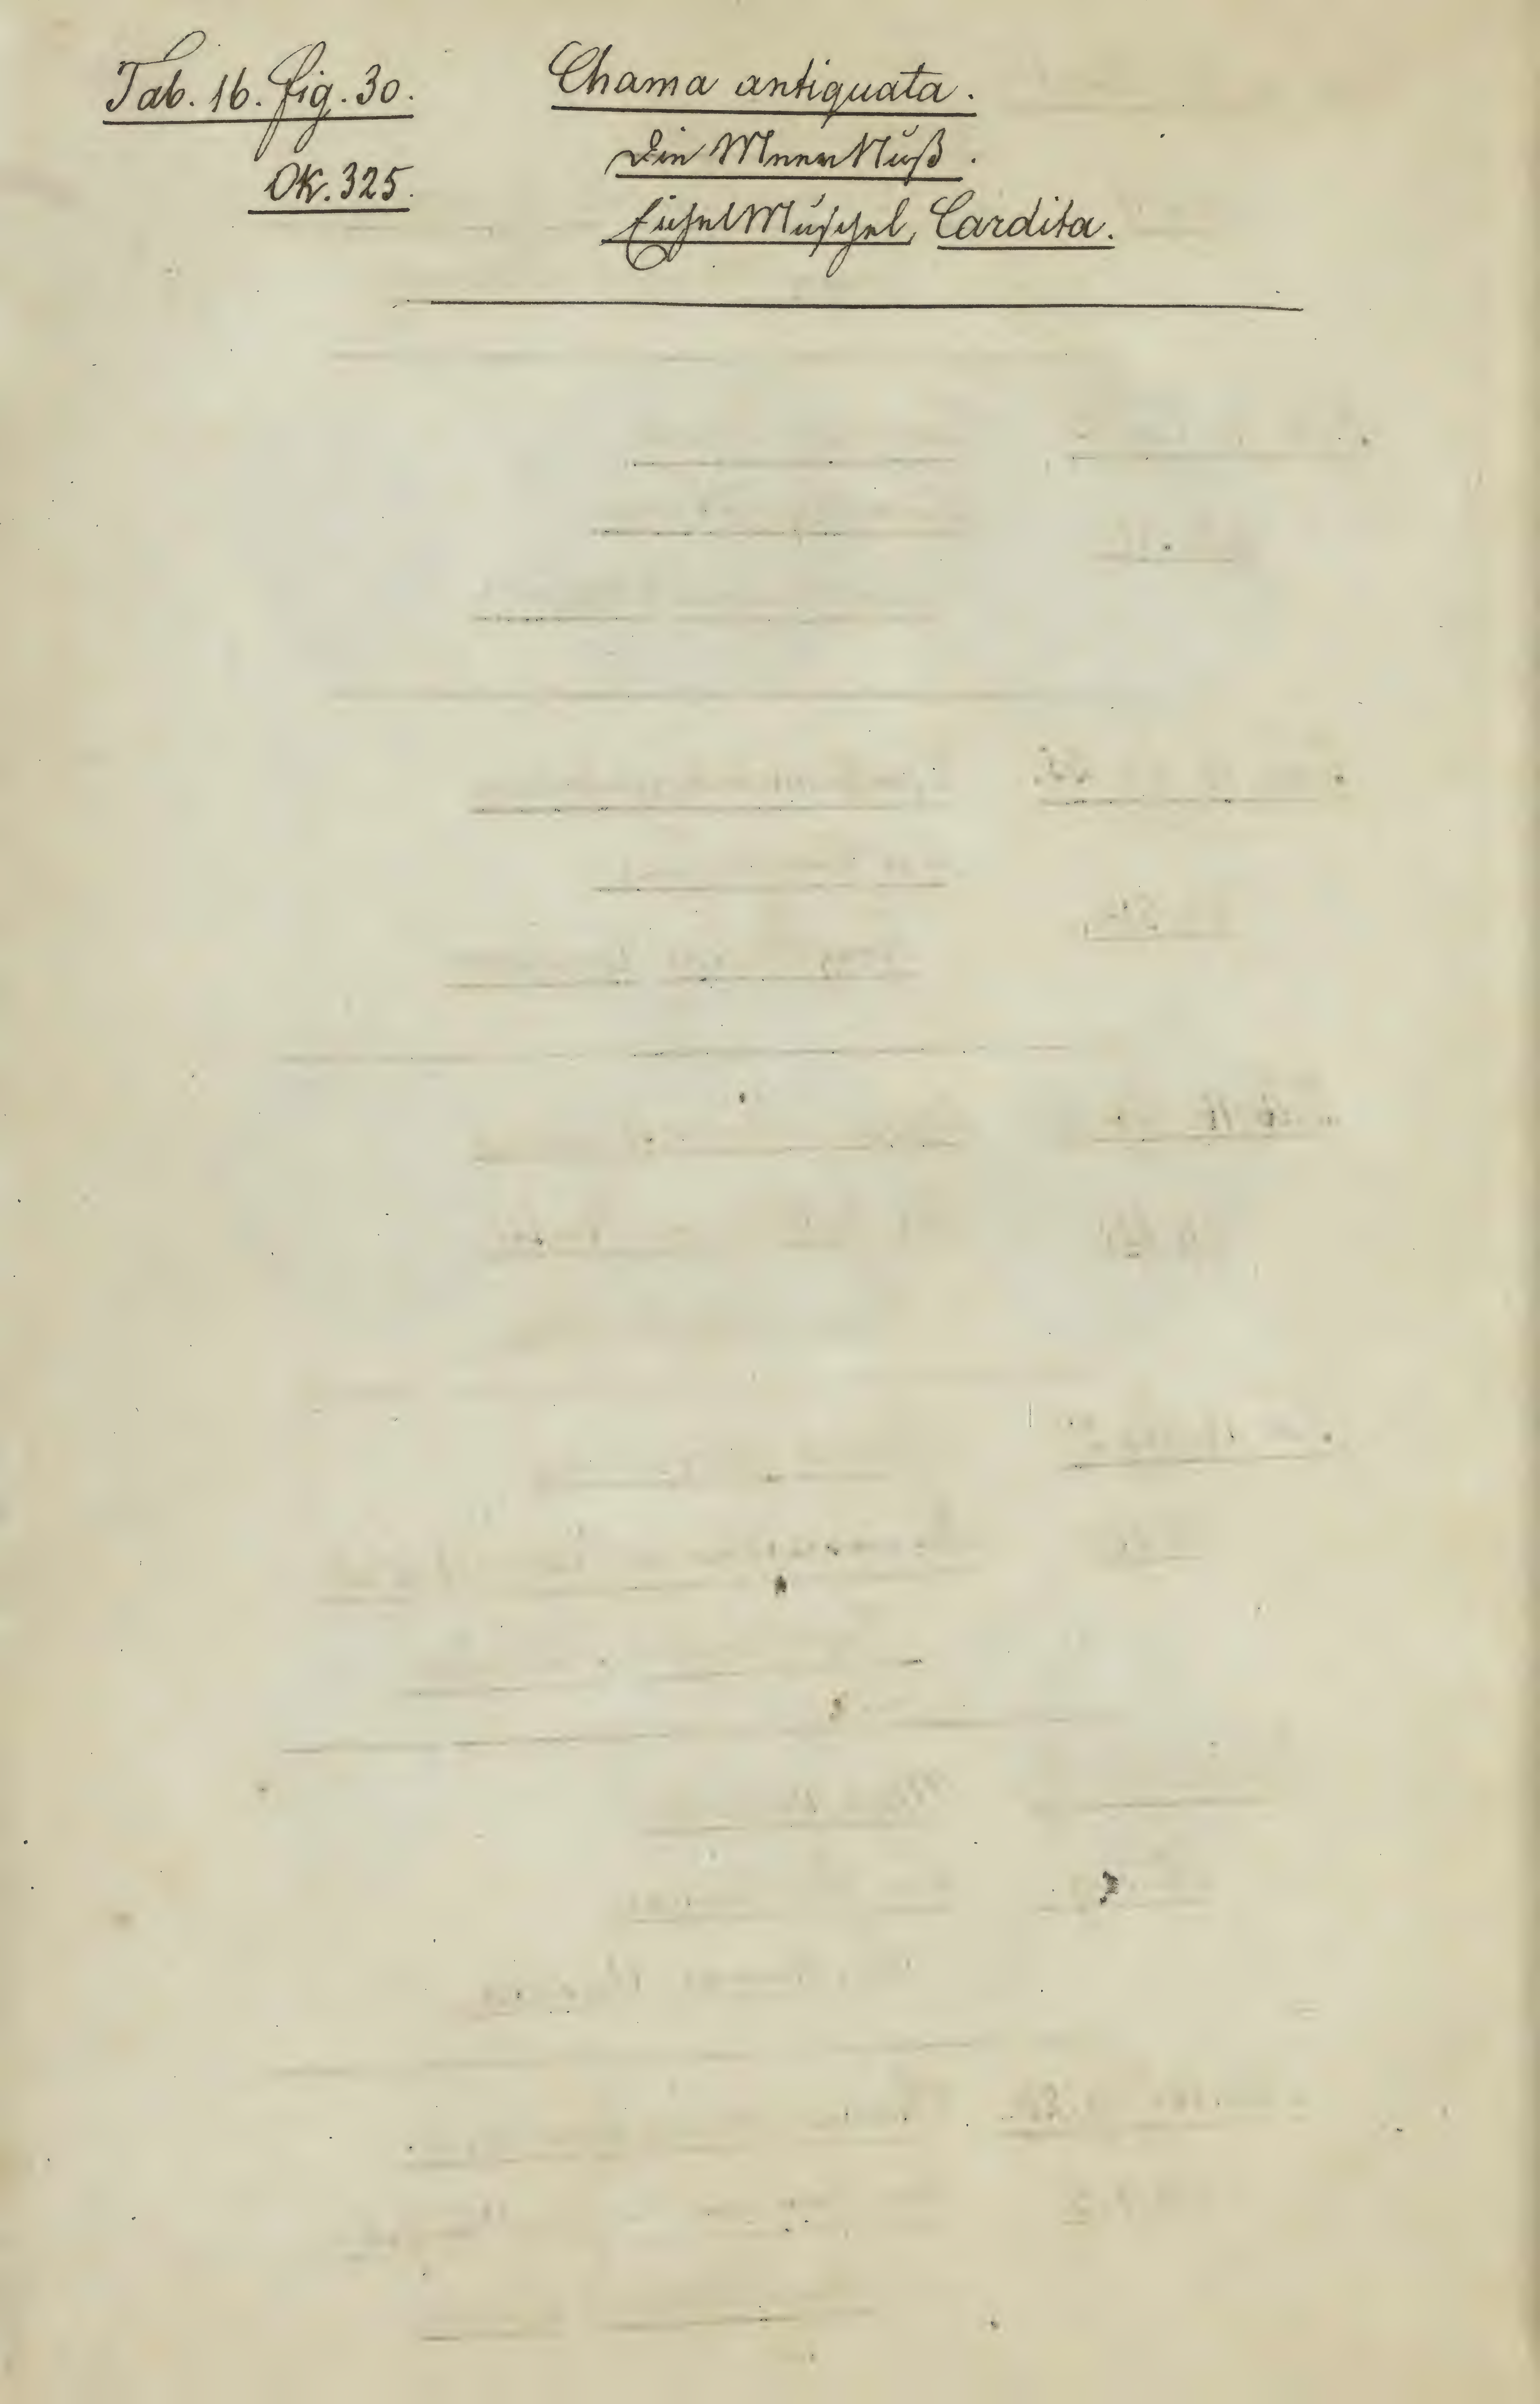 Tab. 16. fig. 30.
OK. 325.
Chama antiquata.
Die MeerNuß.
EichelMuschel, Cardita.